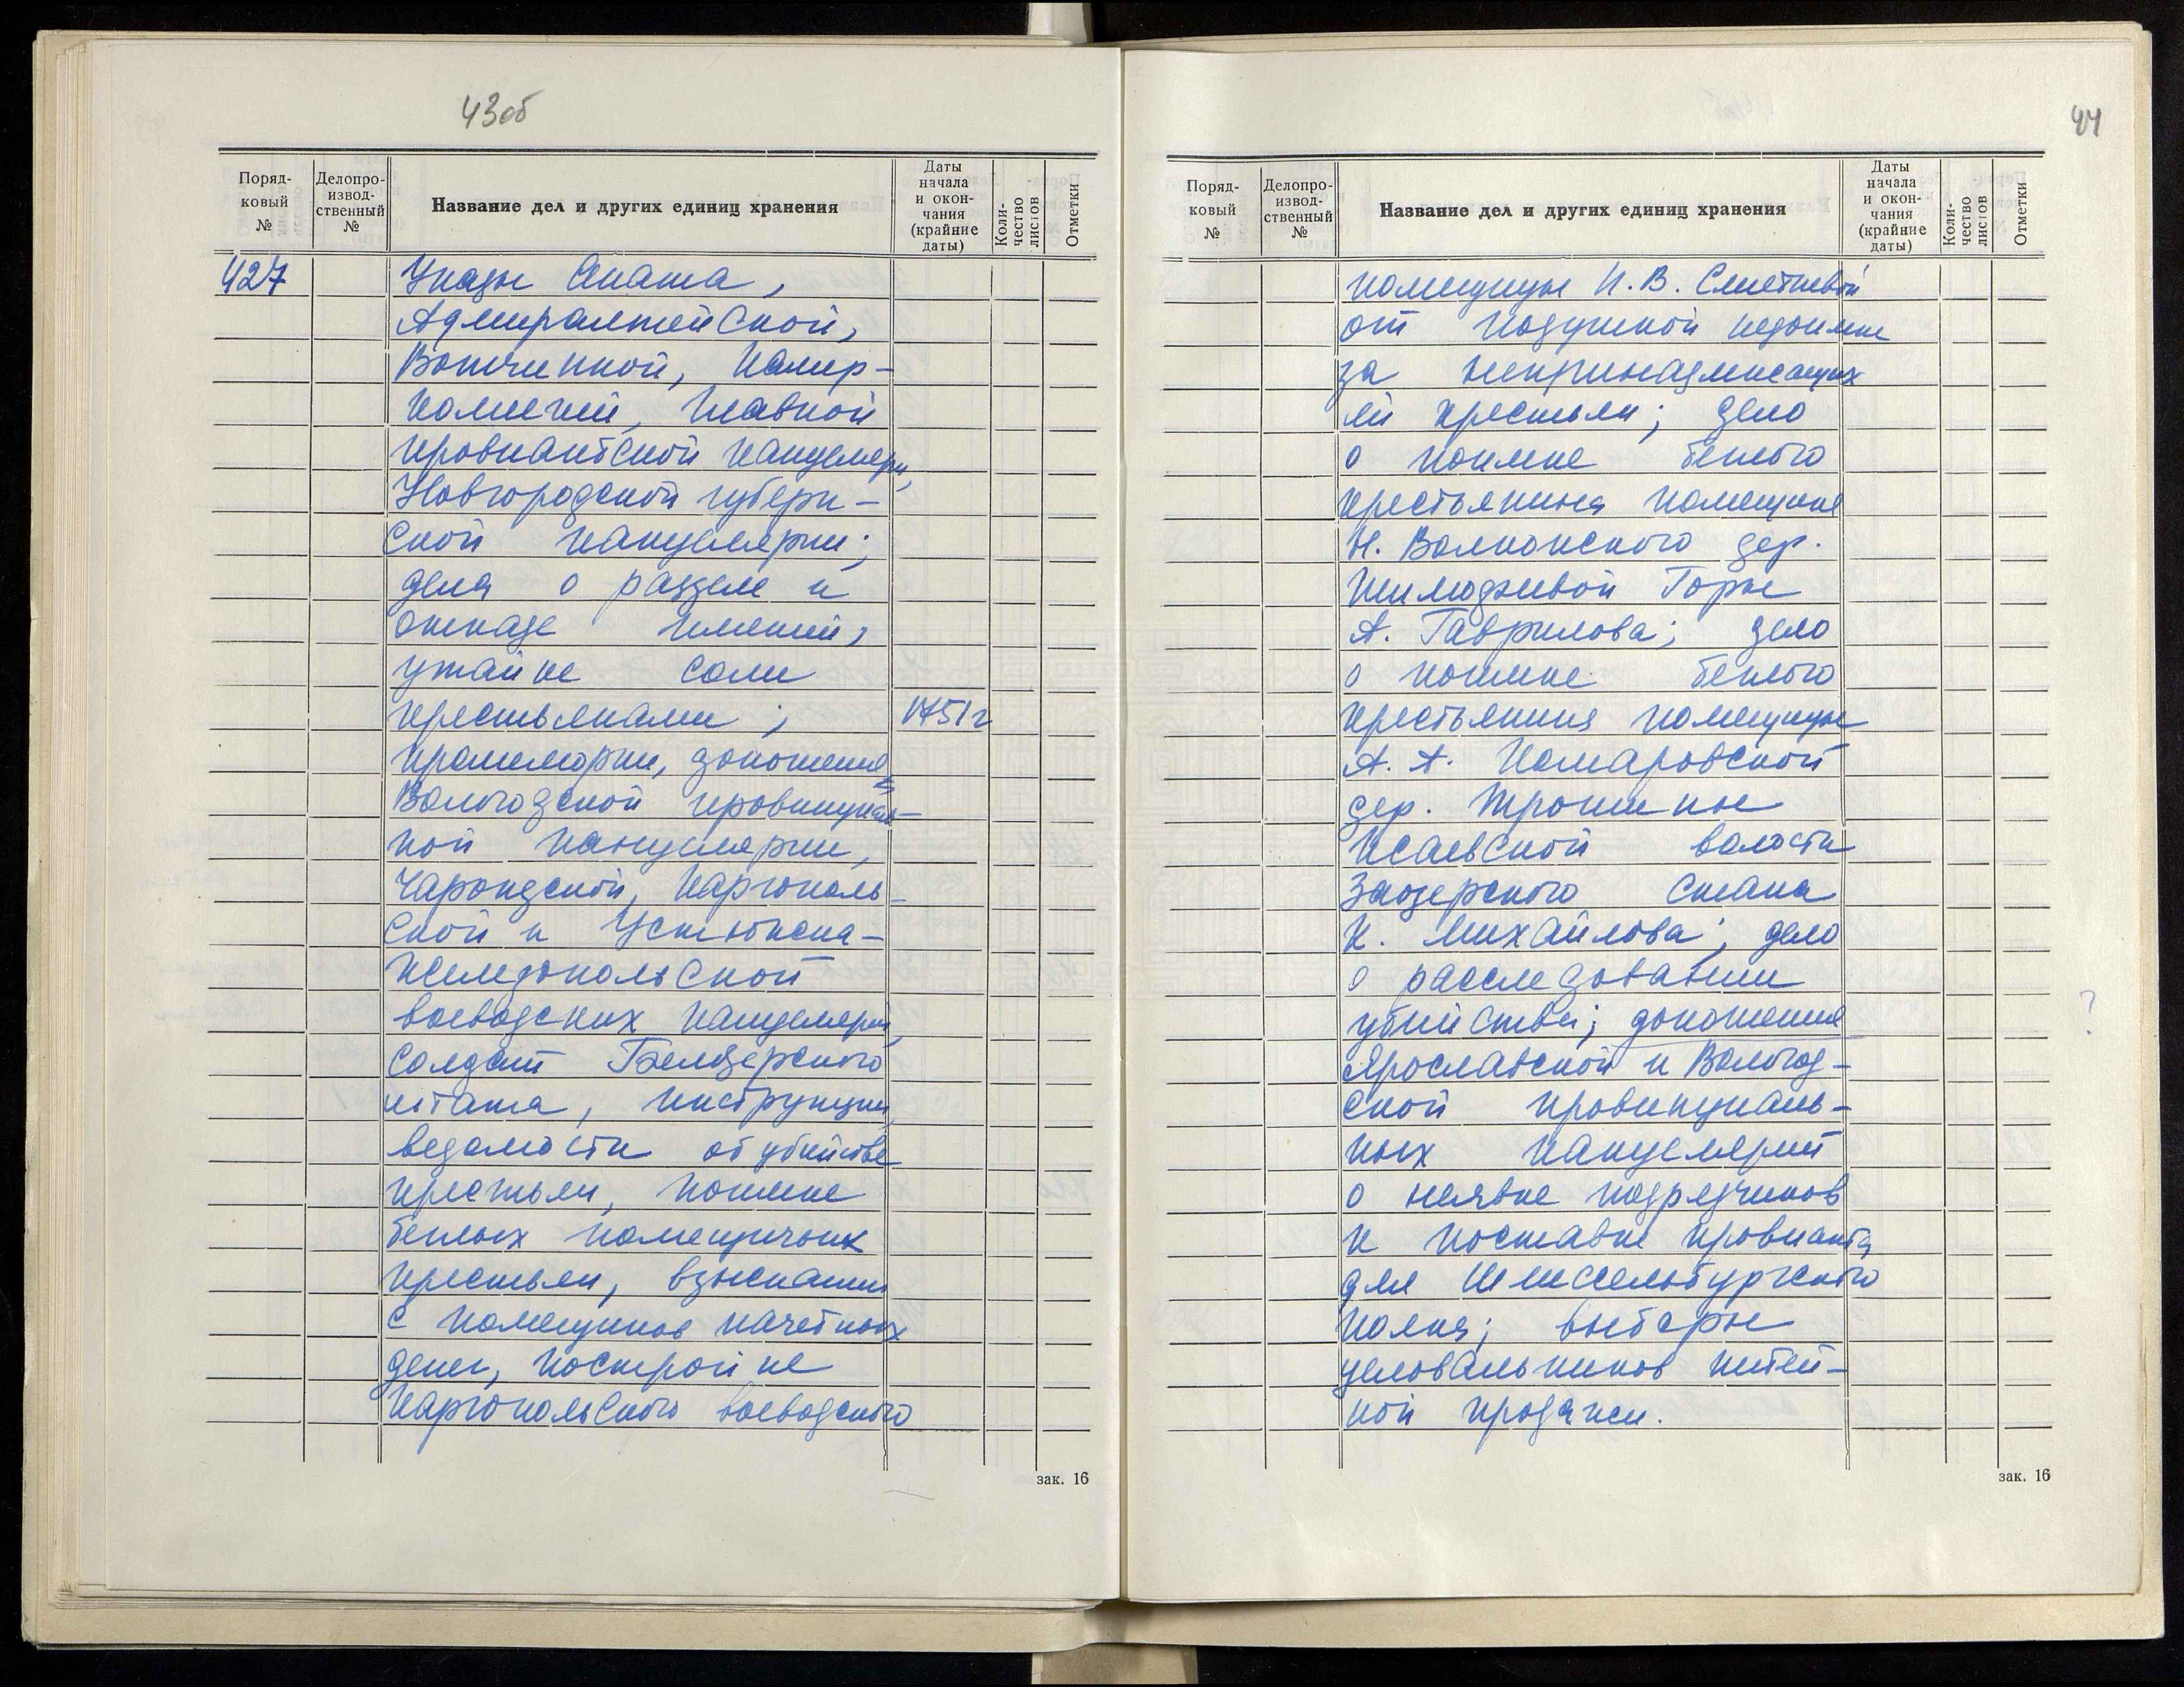 43об
Поряд-
ковый
№
Делопро-
извод-
ственный
№
Название дел и других единиц хранения
Даты
начала
и окон-
чания
(крайние
даты)
Коли-
чество
листов
Отметки
427 Указы Сената,
Адмиралтейской,
Вотчинной, Камер-
коллегий, Главной
провиантской канцелярии,
Новгородской губерн-
ской канцелярии;
дела о разделе и
отказе имений,
утайке соли
крестьянами; 1751г
промемории, доношения
Вологодской провинциаль-
ной канцелярии,
Чарондской, Каргополь-
ской и Устюжна-
Железопольской
воеводских канцелярий,
солдат Белозерского
штата, инструкции,
ведомости об убийстве
крестьян, поимке
беглых помещичьих
крестьян, взыскании
с помещиков начетных
денег, постройке
Каргопольского воеводского
зак. 16
44
Поряд-
ковый
№
Делопро-
извод-
ственный
№
Название дел и других единиц хранения
Даты
начала
и окон-
чания
(крайние
даты)
Коли-
чество
листов
Отметки
помещицы И. В.
от подушной недоимки
за непринадлежащих
ей крестьян; дело
о поимке беглого
крестьянина помещика
Н. Волконского дер.
Горы
А. Гаврилова; дело
о поимке беглого
крестьянина помещицы
А. А. Комаровской
дер. Трошкине
Исаевской волости
Заозерского стана
К. Михайлова; дело
о расследовании
убийства; доношения
?
Ярославской и Вологод-
ской провинциаль-
ных канцелярий
о неявке подрядчиков
к поставке провианта
для Шлиссельбургского
полка; выборы
целовальников питей-
ной продажи.
зак. 16